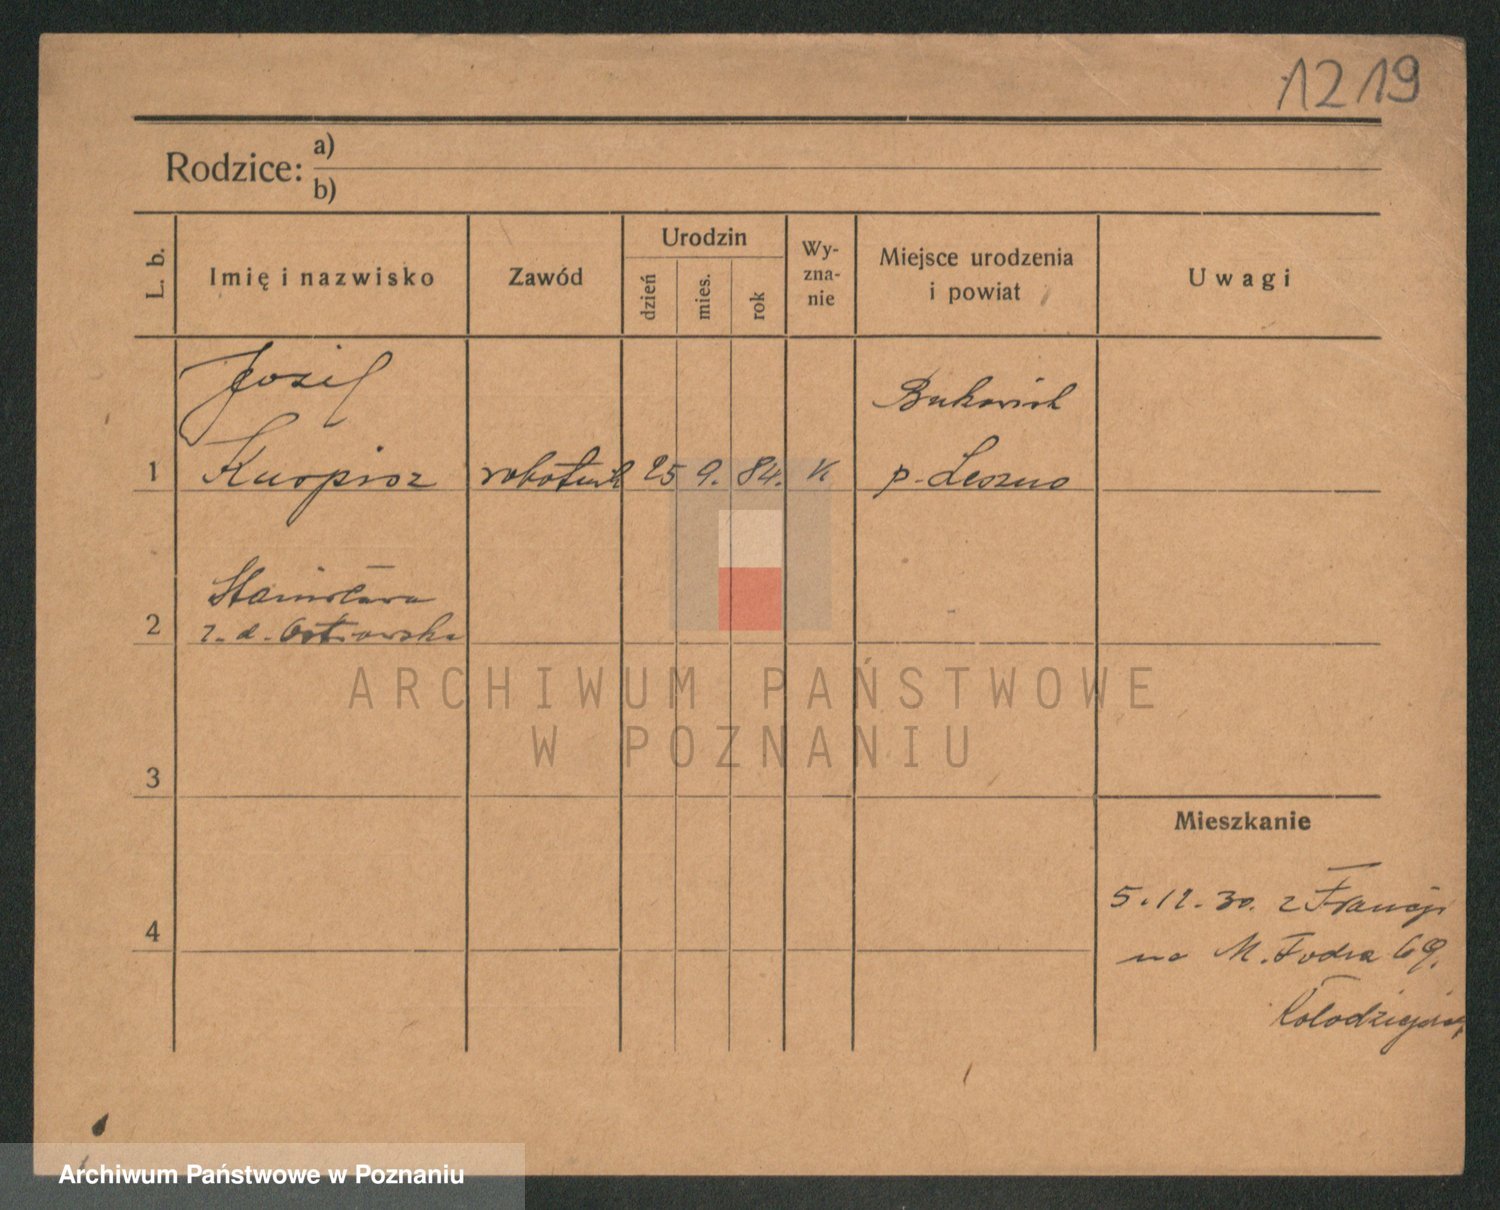 1219
Rodzice: a)
b)
L. b.
Imię i nazwisko
Zawód
Urodzin
dzień
mies.
rok
Wy-
zna-
nie
Miejsce urodzenia
i powiat
Uwagi
Józef
Bukowiech
1 Kurpisz robotnik 25 9. 84. K p. Leszno
Stanisława
2 z. d. Ostrowska
ARCHIWUM PAŃSTWOWE
W POZNANIU
3
Mieszkanie
5.12.30. z Francji
4
na M. Focha 69.
Archiwum Państwowe w Poznaniu